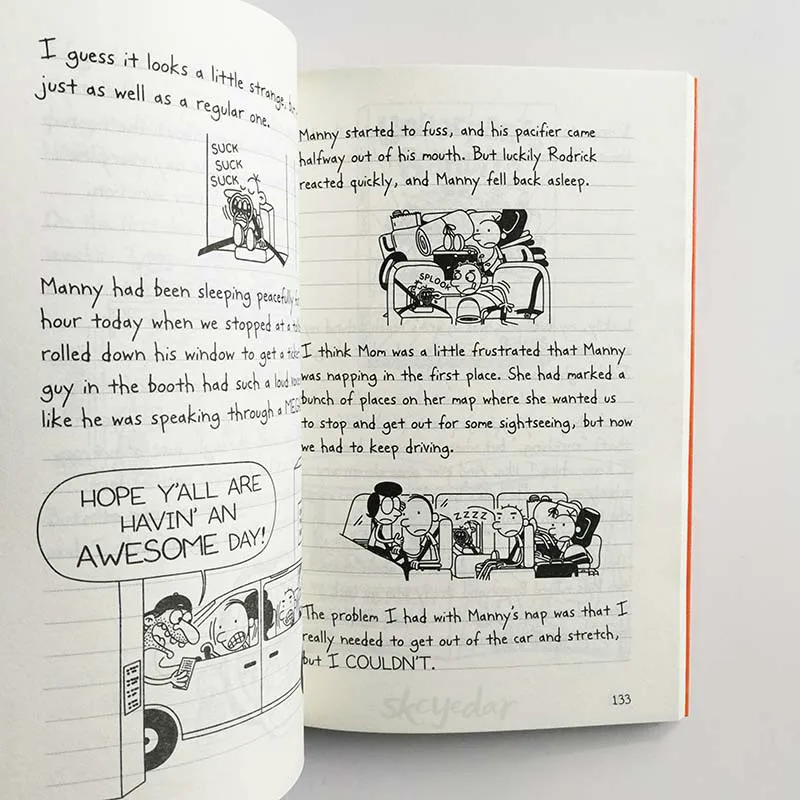 I guess it looks a little strange,
just as well as a regular one.
SUCK
SUCK
SUCK
Manny had been sleeping peacefully
hour today when we stopped at a
rolled down his window to get a
guy in the booth had such a loud
like he was speaking through a
HOPE Y'ALL ARE
HAVIN' AN
AWESOME DAY!
Manny started to fuss, and his pacifier came
halfway out of his mouth. But luckily Rodrick
reacted quickly, and Manny fell back asleep.
SPLOOK
I think Mom was a little frustrated that Manny
was napping in the first place. She had marked a
bunch of places on her map where she wanted us
to stop and get out for some sightseeing, but now
we had to keep driving.
ZZZZ
The problem I had with Manny's nap was that I
really needed to get out of the car and stretch,
but I COULDN'T.
133
skcyedar